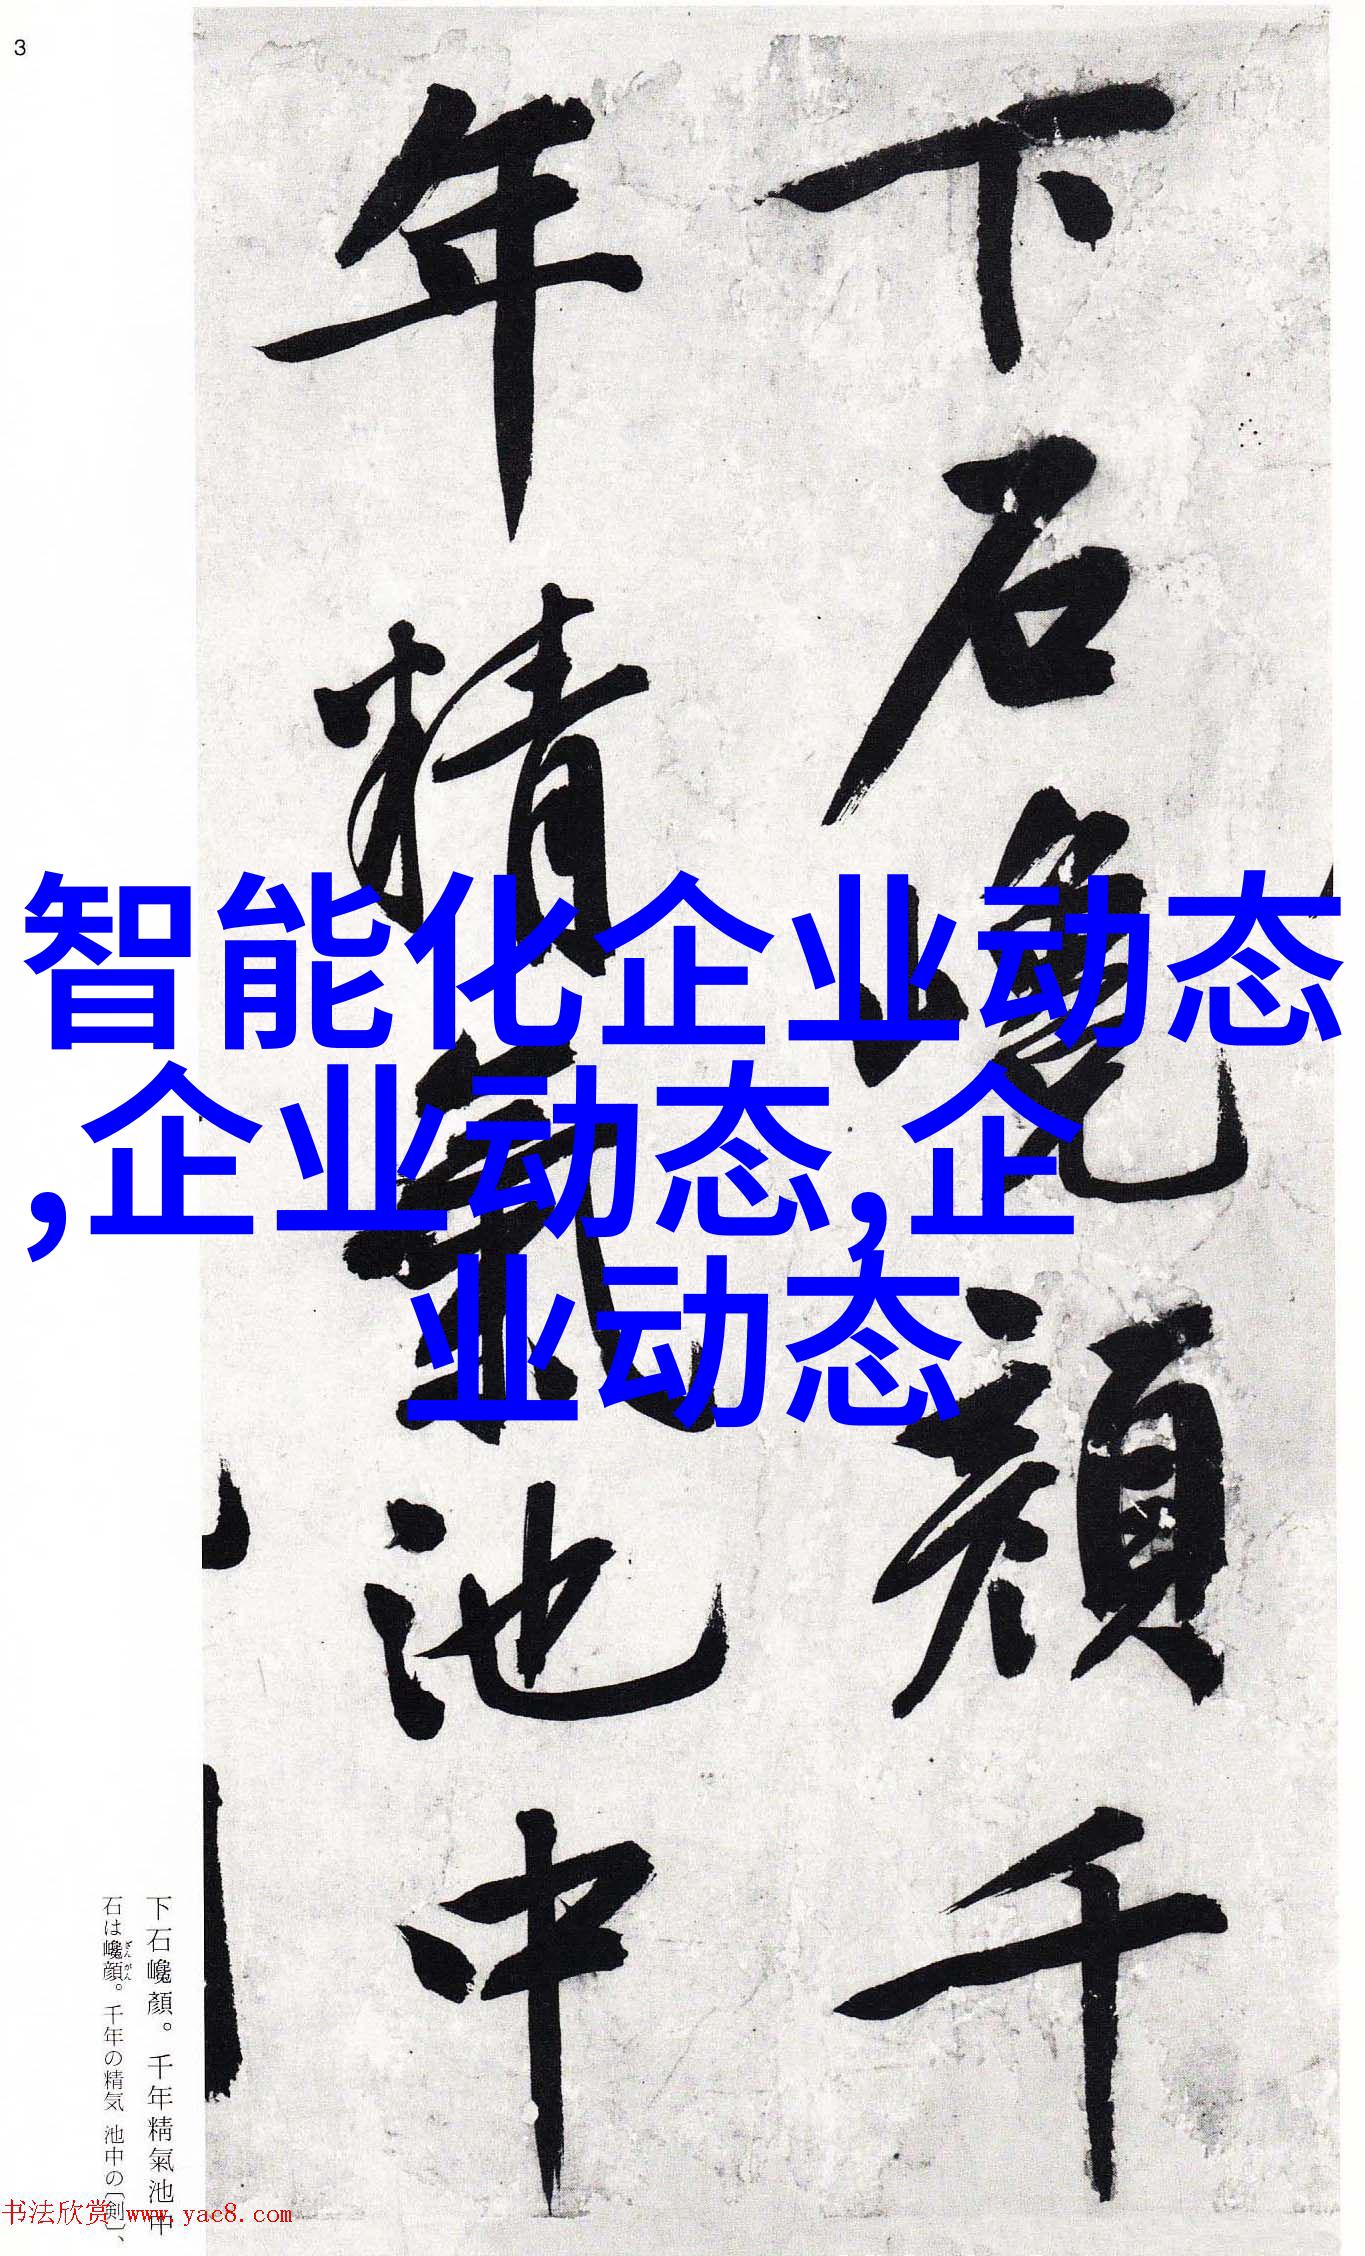 3
下石巉顏千
年精氣池中
智能化企业动态
,企业动态,企
业动态
下石巉顏。千年精氣池中
石は巉顔。千年の精気 池中の〔剣〕、
ざん がん
书法欣赏 www.yac8.com